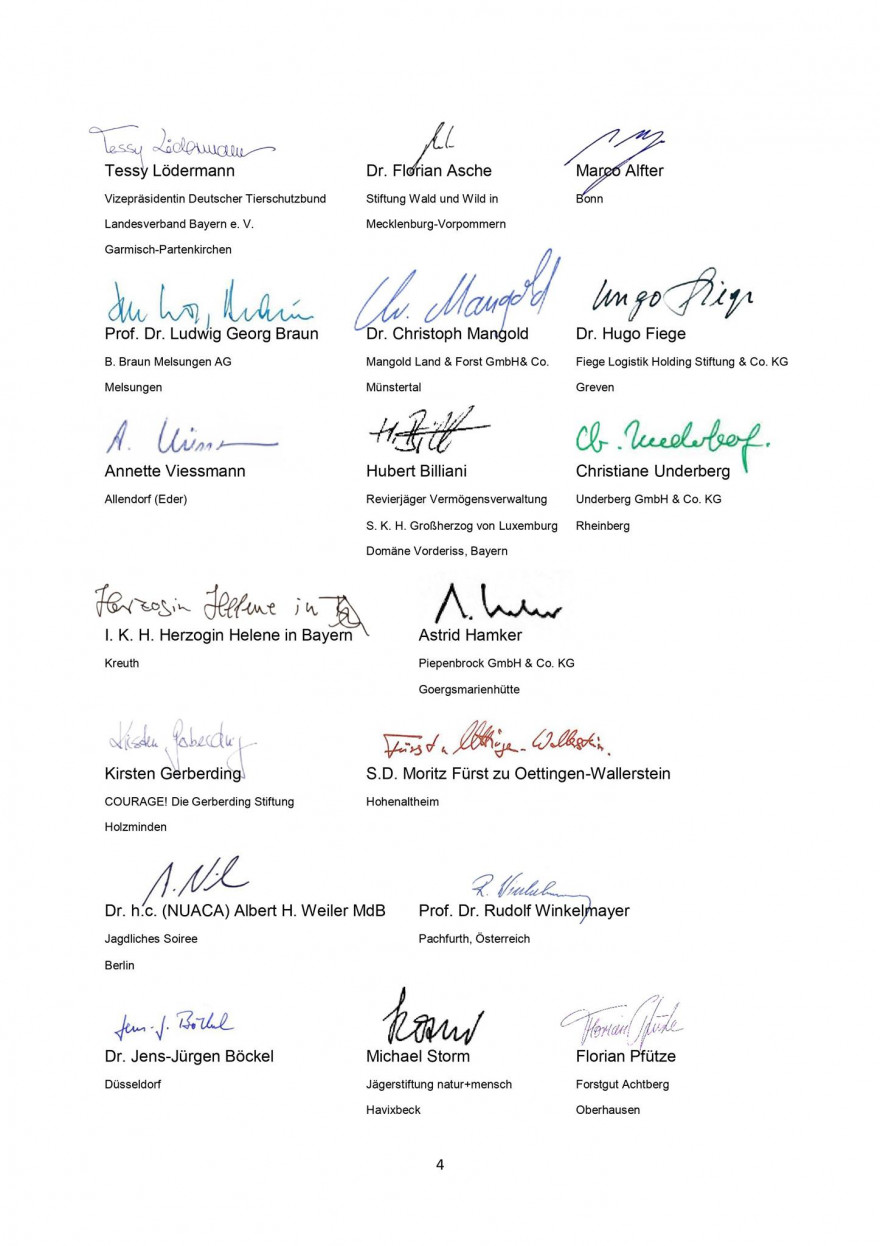 Tessy Lödermann
Tessy Lödermann
Vizepräsidentin Deutscher Tierschutzbund
Landesverband Bayern e. V.
Garmisch-Partenkirchen
Dr. Florian Asche
Stiftung Wald und Wild in
Mecklenburg-Vorpommern
Marco Alfter
Bonn
Prof. Dr. Ludwig Georg Braun
B. Braun Melsungen AG
Melsungen
Chr. Mangold
Dr. Christoph Mangold
Mangold Land & Forst GmbH& Co.
Münstertal
Hugo Fiege
Dr. Hugo Fiege
Fiege Logistik Holding Stiftung & Co. KG
Greven
Annette Viessmann
Allendorf (Eder)
Hubert Billiani
Revierjäger Vermögensverwaltung
S. K. H. Großherzog von Luxemburg
Domäne Vorderiss, Bayern
Ch. Underberg.
Christiane Underberg
Underberg GmbH & Co. KG
Rheinberg
Herzogin Helene in
I. K. H. Herzogin Helene in Bayern
Kreuth
Astrid Hamker
Piepenbrock GmbH & Co. KG
Goergsmarienhütte
Kirsten Gerberding
Kirsten Gerberding
COURAGE! Die Gerberding Stiftung
Holzminden
S.D. Moritz Fürst zu Oettingen-Wallerstein
Hohenaltheim
Dr. h.c. (NUACA) Albert H. Weiler MdB
Jagdliches Soiree
Berlin
Prof. Dr. Rudolf Winkelmayer
Pachfurth, Österreich
Jens-J. Böckel
Dr. Jens-Jürgen Böckel
Düsseldorf
Michael Storm
Jägerstiftung natur+mensch
Havixbeck
Florian Pfütze
Florian Pfütze
Forstgut Achtberg
Oberhausen
4